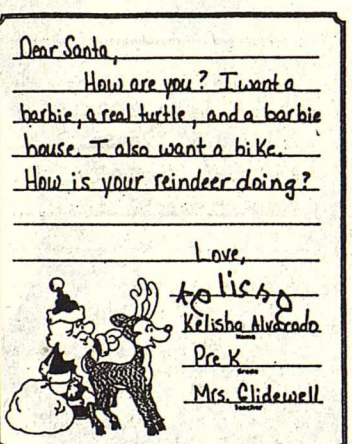 Dear Santa,
How are you? I want a
barbie, a real turtle, and a barbie
house. I also want a bike.
How is your reindeer doing?
Love,
Kelisha
Kelisha Alvarado
Name
Pre K
Grade
Mrs. Glidewell
Teacher